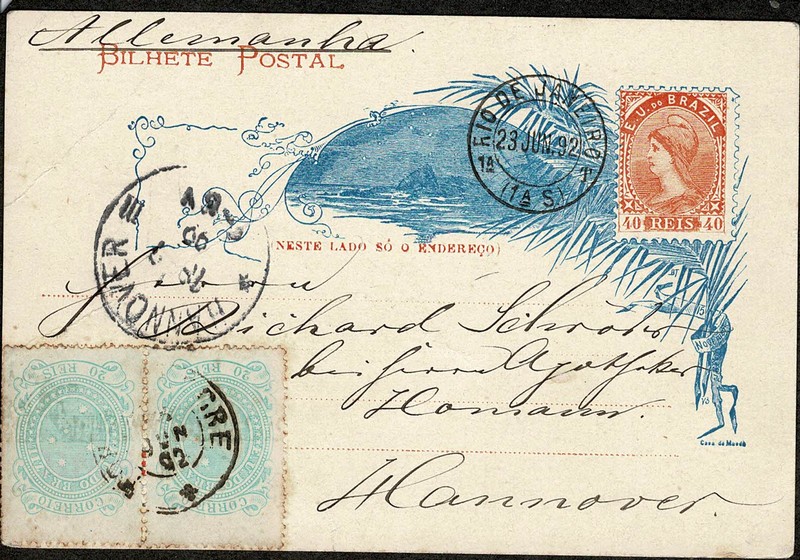 Allemanha.
BILHETE POSTAL
RIO DE JANEIRO
23 JUN. 92
1ª T
(1ª S)
E. U. DO BRAZIL
40 REIS 40
HANNOVER
(NESTE LADO SÓ O ENDEREÇO)
Herrn
Richard Schröder
bei Herrn Apotheker
Homann.
Hannover.
20 REIS
20 REIS
CORREIO
CORREIO
Casa da Moeda